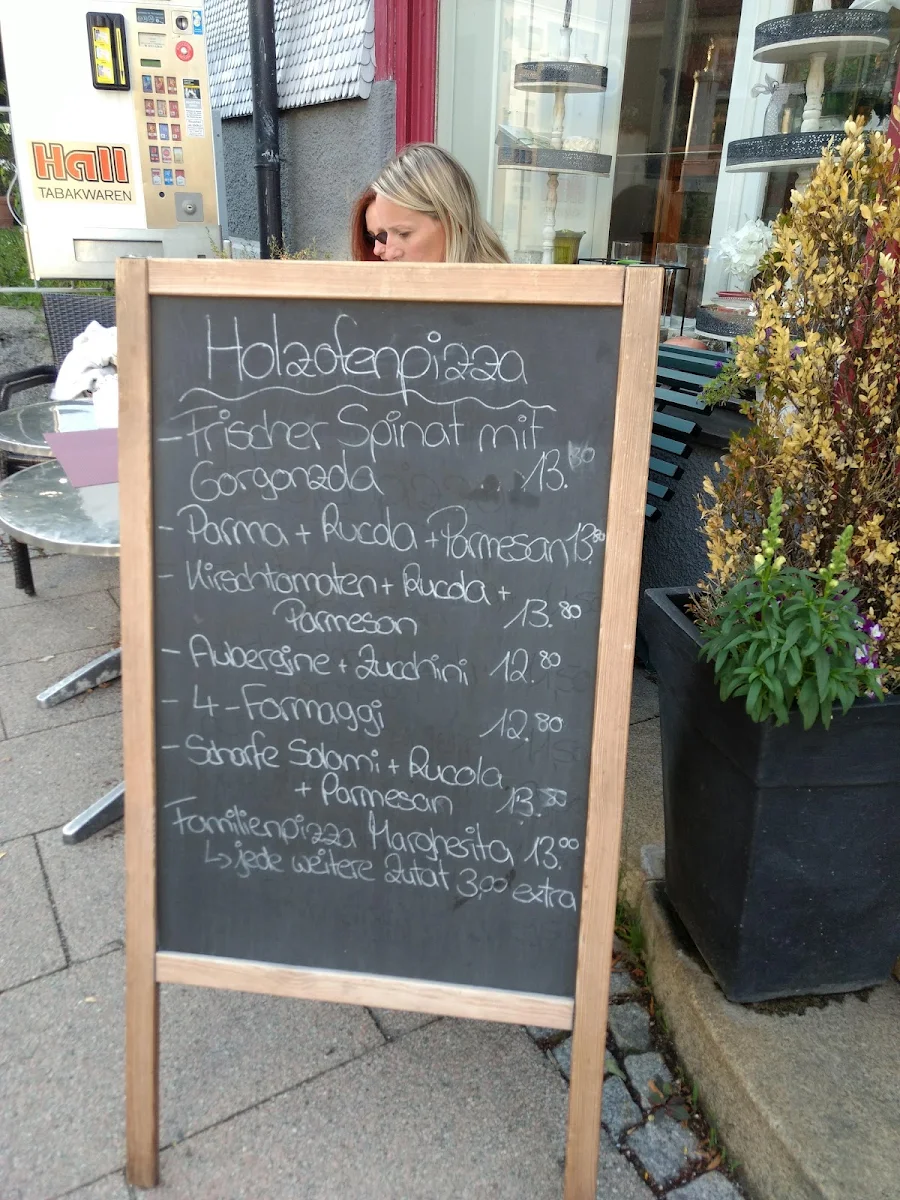 Hall
TABAKWAREN
Holzofenpizza
- Frischer Spinat mit
Gorgonzola 13.80
- Parma + Rucola + Parmesan 13.80
- Kirschtomaten + Rucola +
Parmesan 13.80
- Aubergine + Zucchini 12.80
- 4-Formaggi 12.80
- Scharfe Salami + Rucola
+ Parmesan 13.80
Familienpizza Margherita 13.00
↳ jede weitere Zutat 3,00 extra